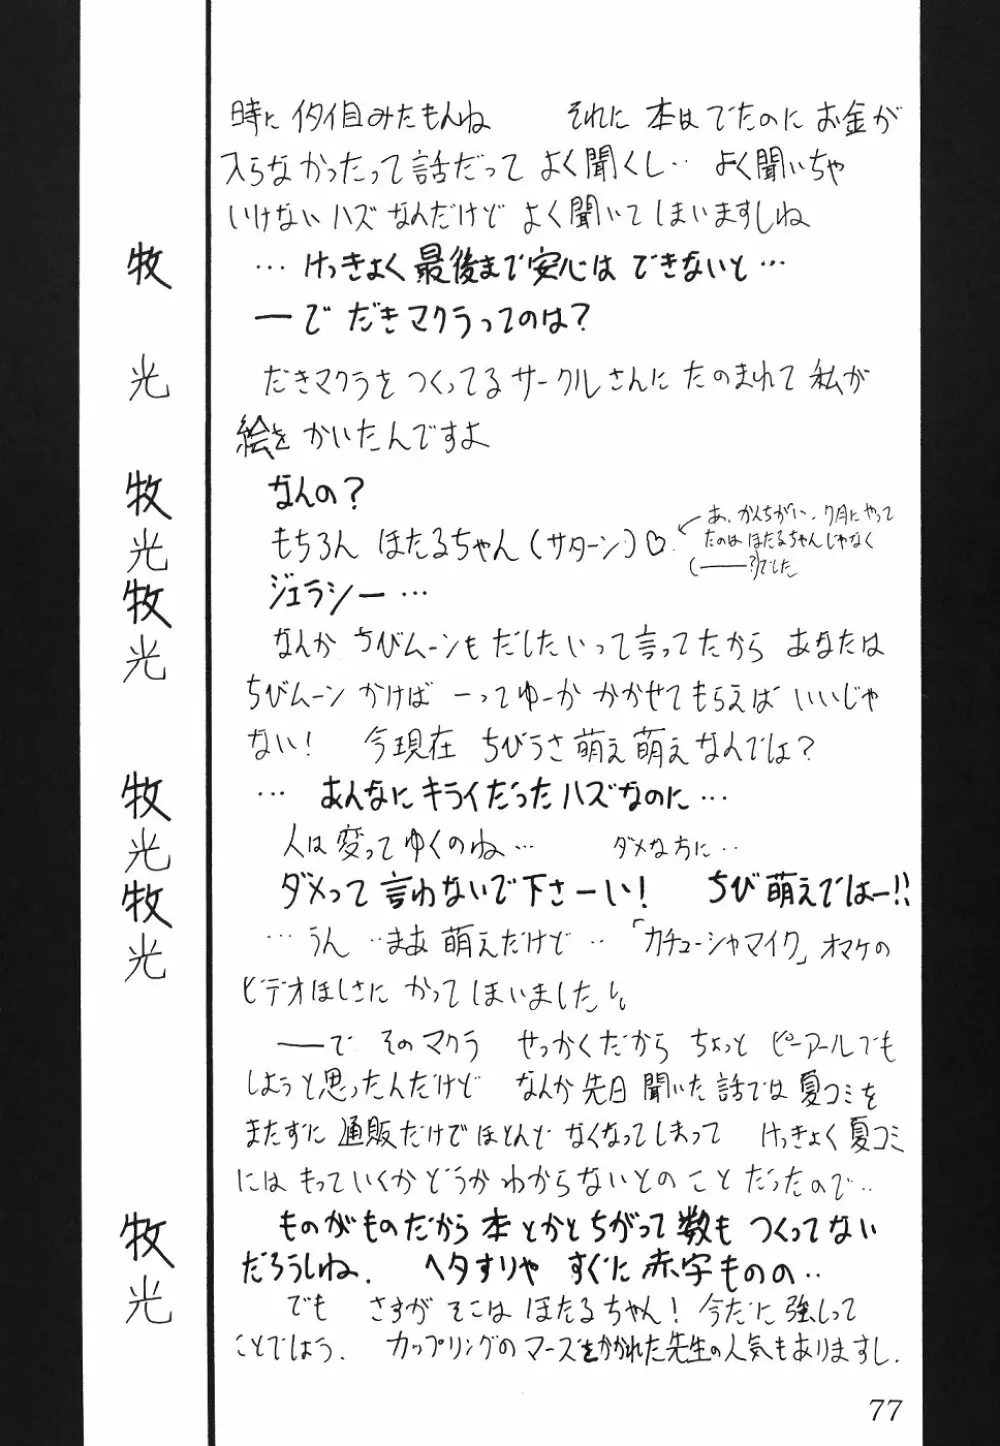 時に イタイ目みたもんね　それに 本は でたのに お金が
入らなかったって 話だって よく聞くし‥ よく聞いちゃ
いけない ハズ なんだけど よく 聞いて しまいますしね
牧　… けっきょく 最後まで 安心は できないと…
ーで だきマクラってのは?
光　だきマクラを つくってる サークルさんに たのまれて 私が
絵を かいたんですよ
牧　なんの?
光　もちろん ほたるちゃん (サターン) ♡
← あ、かんちがい. 7月に やって
たのは ほたるちゃん じゃなく
(――?)でした
牧　ジェラシー…
光　なんか ちびムーンも だしたいって 言ってたから あなたは
ちびムーン かけば ーって ゆーか かかせて もらえば いいじゃ
ない! 今現在 ちびうさ 萌え 萌え なんでは?
牧　… あんなに キライだった ハズなのに…
光　人は 変って ゆくのね… ダメな 方に‥
牧　ダメって 言わないで 下さーい! ちび 萌えではー!!
光　… うん ‥まあ 萌えだけど ‥ 「カチューシャマイク」 オマケの
ビデオほしさに かって しまいました
――で その マクラ せっかくだから ちょっと ピーアールでも
しようと思ったんだけど なんか 先日 聞いた 話では 夏コミを
またずに 通販だけで ほとんど なくなって しまって けっきょく 夏コミ
には もって いくか どうか わからないとの ことだったので‥
牧　ものがものだから 本 とかと ちがって 数も つくってない
だろうしね. ヘタすりゃ すぐに 赤字ものの‥
光　でも さすが そこは ほたるちゃん! 今だに 強しって
ことでしょう. カップリングの マーズを かかれた 先生の 人気も ありますし.
77